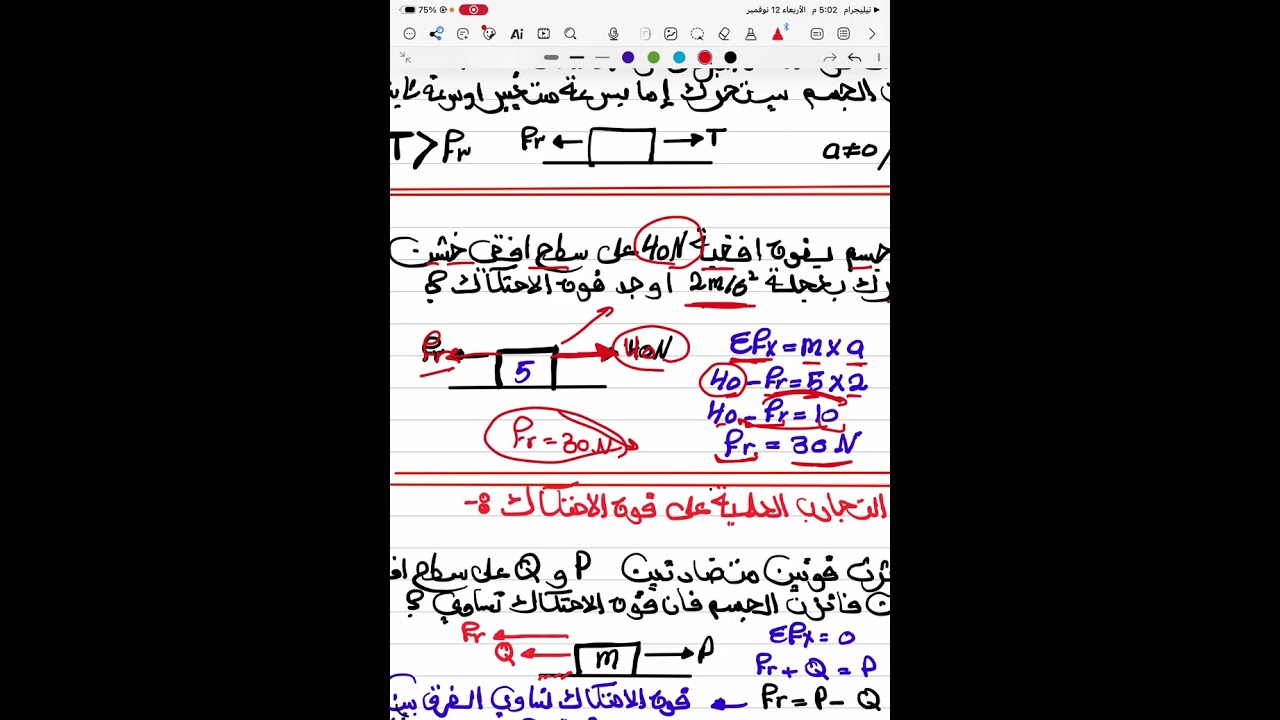 75%
▶ تيليجرام 5:02 م الأربعاء 12 نوفمبر
Ai
الجسم سيتحرك إما بسرعة متغير اوسرعة
T > Fr
Fr
T
a≠0
جسم بقوة افقية 40N على سطح افقي خشن
بعجلة 2m/s² اوجد قوة الاحتكاك ؟
Fr
5
40N
ΣFx = m x a
40 - Fr = 5 x 2
40 - Fr = 10
Fr = 30 N
Fr = 30 N
التجارب العلمية على قوة الاحتكاك :-
قوتين متضادتين P و Q على سطح
فاتزن الجسم فان قوة الاحتكاك تساوي ؟
Fr
Q
m
P
ΣFx = 0
Fr + Q = P
Fr = P - Q
قوة الاحتكاك تساوي الفرق بين